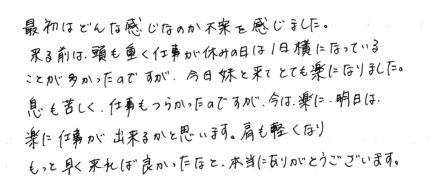 最初はどんな感じなのか不安を感じました。
来る前は、頭も重く仕事が休みの日は1日横になっている
ことが多かったのですが、今日妹と来てとても楽になりました。
息も苦しく、仕事もつらかったのですが、今は、楽に、明日は、
楽に仕事が出来るかと思います。肩も軽くなり
もっと早く来れば良かったなと、本当にありがとうございます。